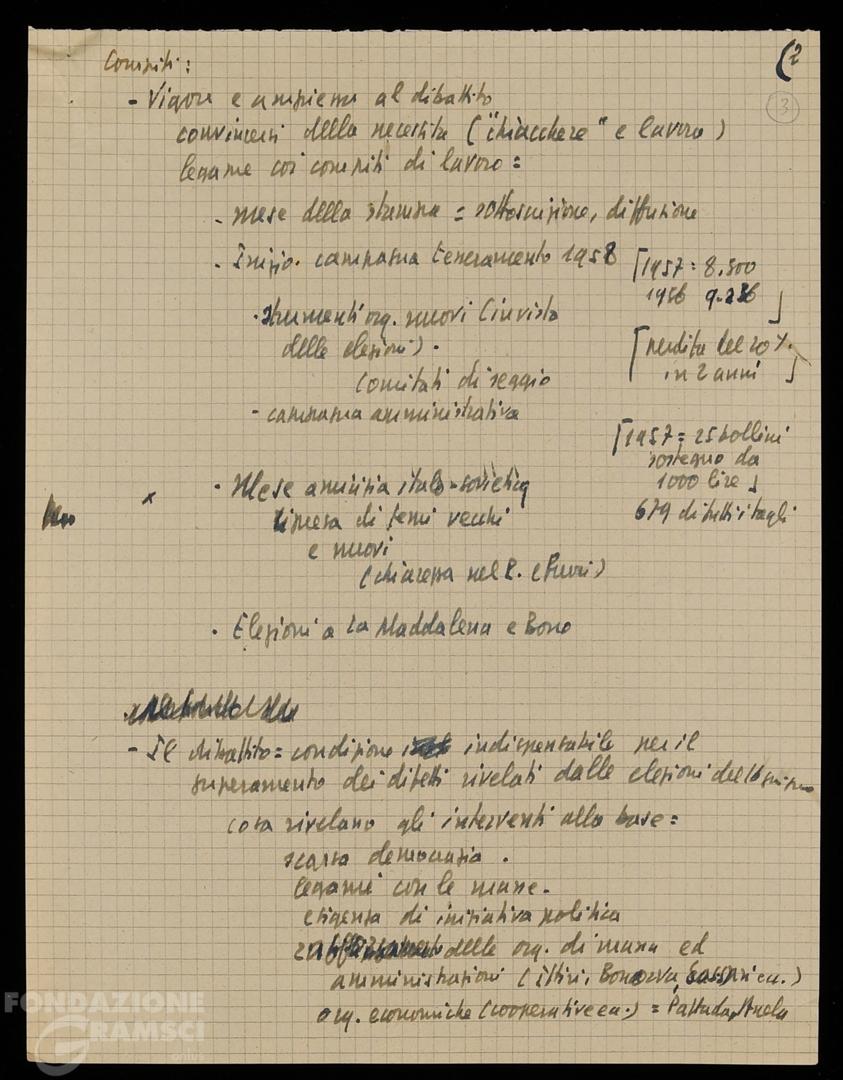 (2
3
Compiti:
- Vigore e ampiezza al dibattito
convincersi della necessità ("chiacchere" e lavoro)
legame coi compiti di lavoro =
- mese della stampa = sottoscrizione, diffusione
- Inizio campagna tesseramento 1958
[1957 = 8.500
1956 9.236]
· strumenti org. nuovi (in vista
delle elezioni).
[perdita del 20%
in 2 anni]
Comitati di seggio
- campagna amministrativa
[1957 = 25 bollini
sostegno da
1000 lire]
679 di tutti i tagli
x · Mese amicizia italo-sovietica
ripresa di temi vecchi
e nuovi
(chiarezza nel P. e fuori)
· Elezioni a La Maddalena e Bono
- Il dibattito = condizione indispensabile per il
superamento dei difetti rivelati dalle elezioni del 16 giugno
cosa rivelano gli interventi alla base =
scarsa democrazia.
legami con le masse.
esigenza di iniziativa politica
delle org. di massa ed
amministrazioni (Ittiri, Bonorva, Sassari ecc.)
org. economiche (cooperative ecc.) = Pattada, Anela
FONDAZIONE
GRAMSCI
onlus